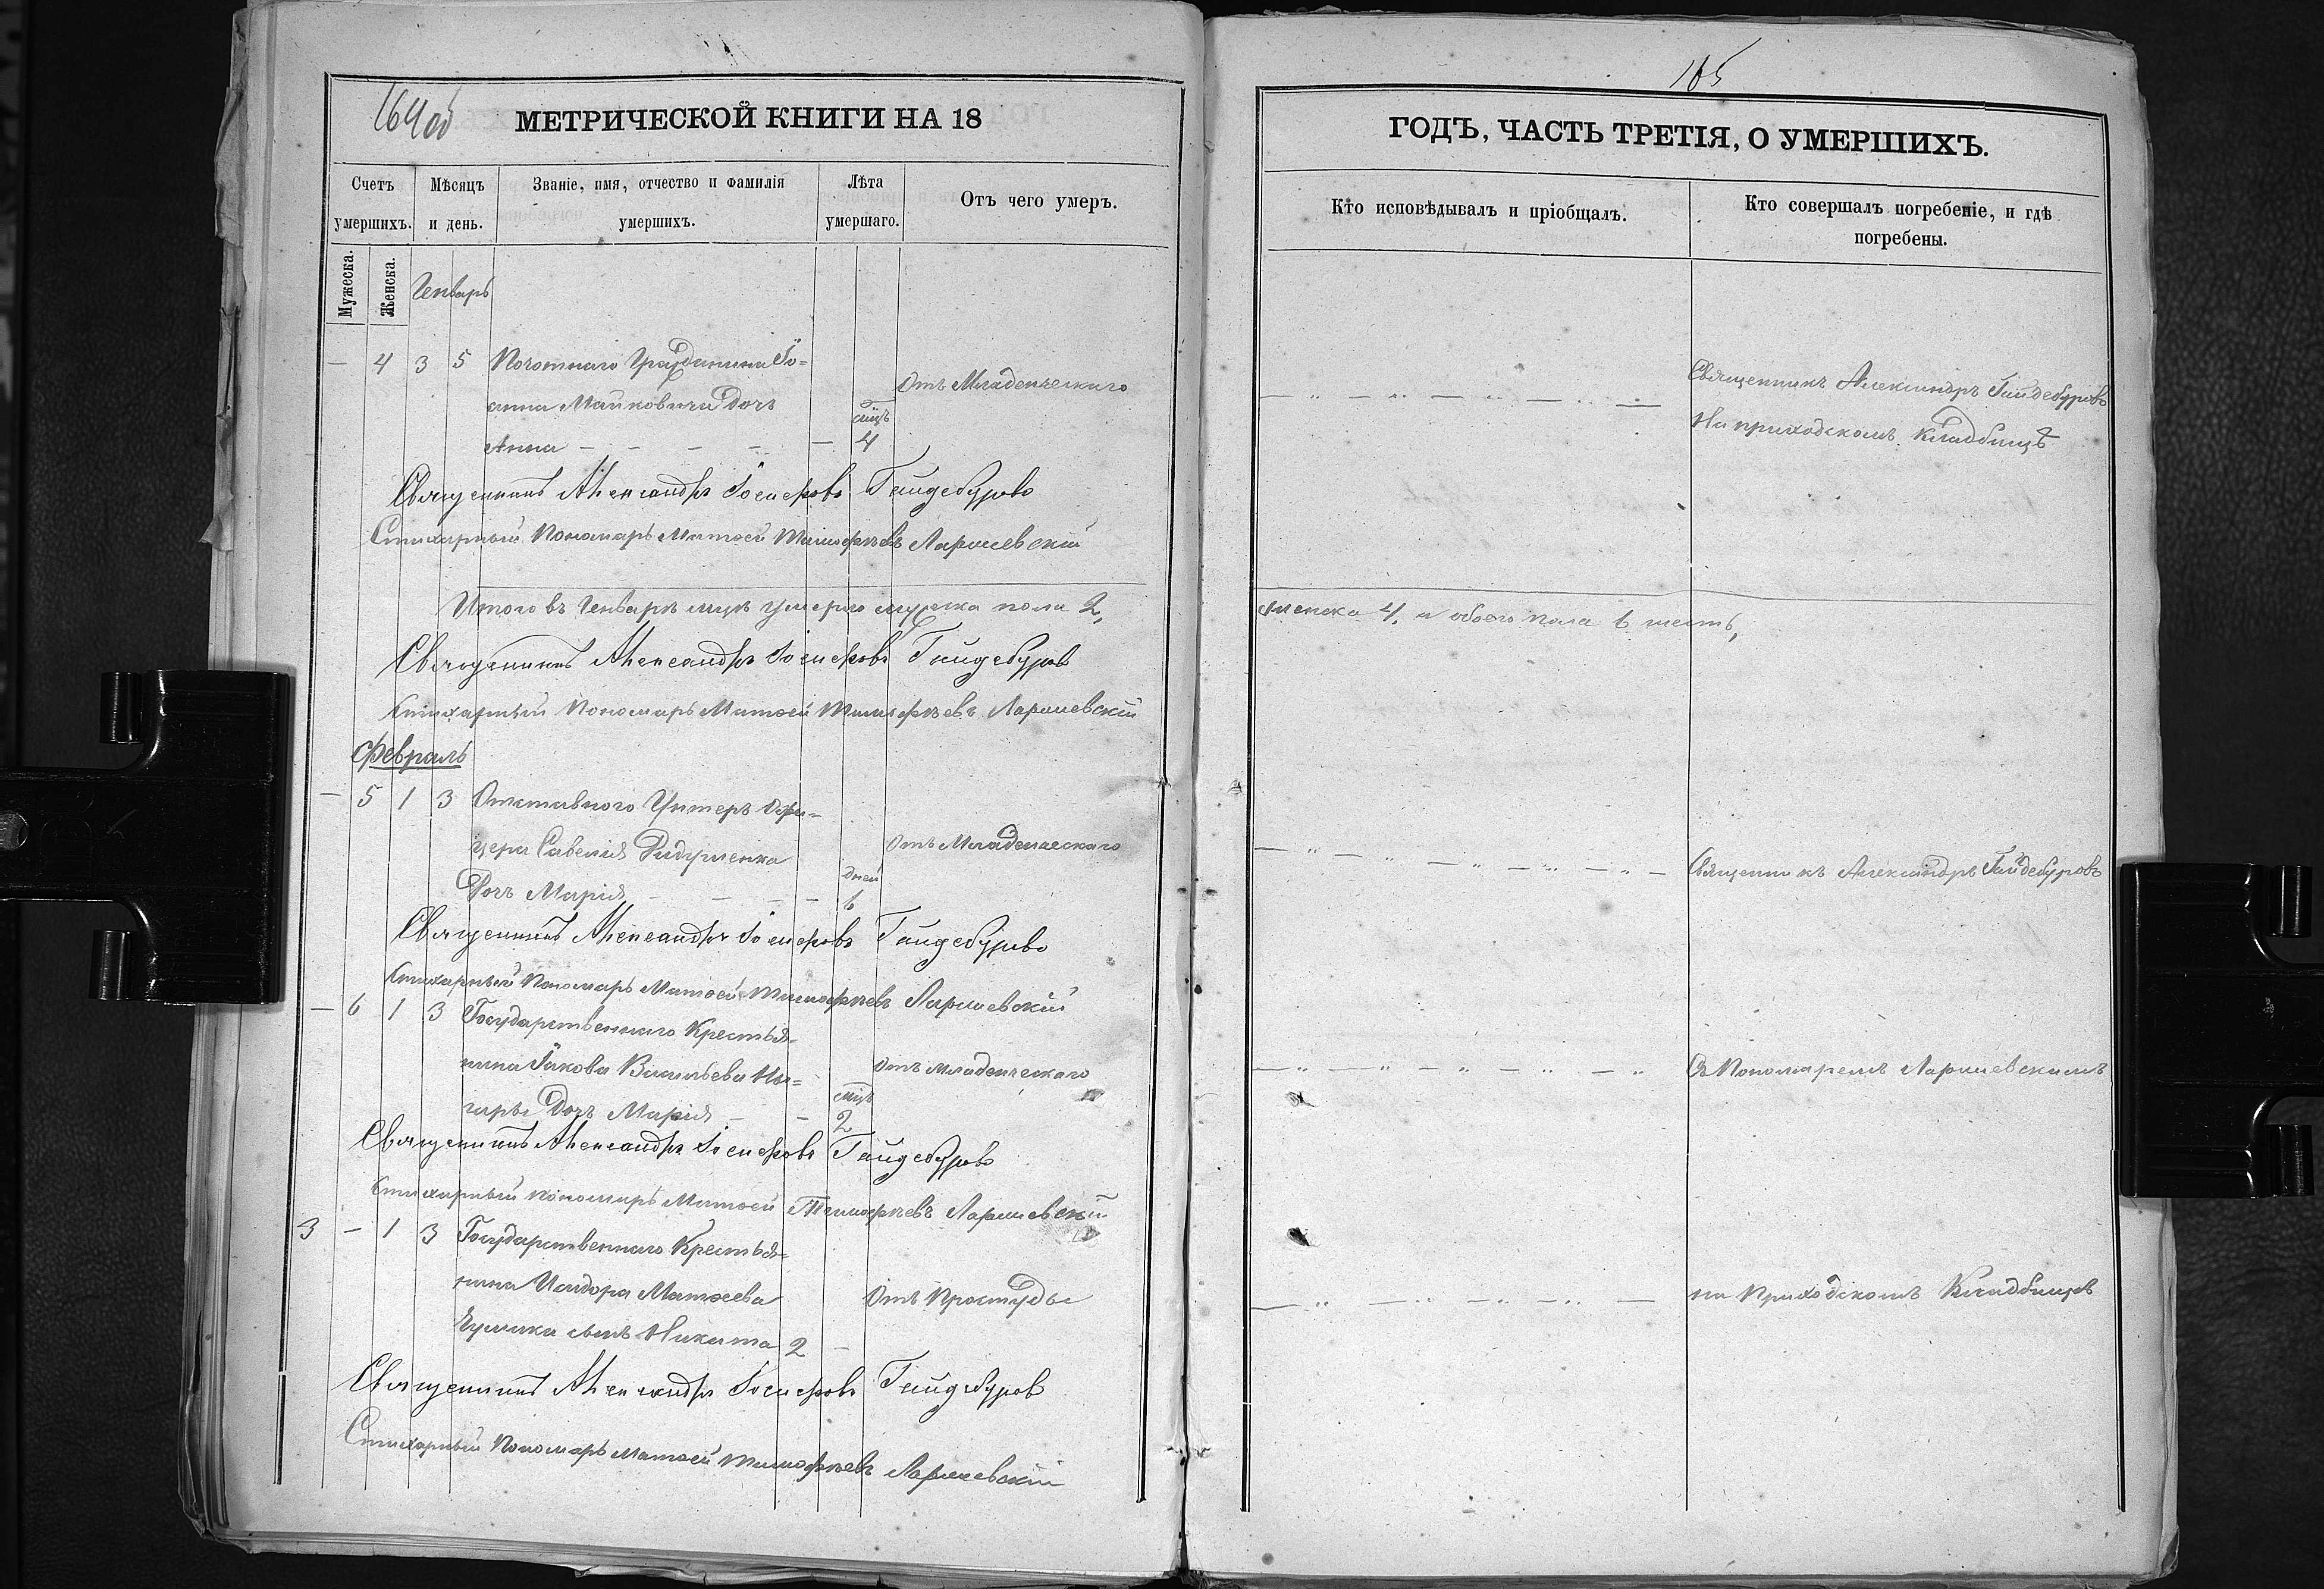 164 об
МЕТРИЧЕСКОЙ КНИГИ НА 18
Счетъ умершихъ.
Мѣсяцъ и день.
Званіе, имя, отчество и фамилія умершихъ.
Лѣта умершаго.
Отъ чего умеръ.
Мужеска.
Женска.
Генварь
— 4 3 5 Почотнаго Гражданина Іо=
анна Майковича дочъ
Анна — — — — — мцъ 4
Отъ Младенческаго
Священникъ Александръ Іосифовъ Гайдебуровъ
Стихарный Пономарь Матѳей Тимофѣевъ Ларшевскій
Итого въ Генварѣ мцѣ умерло мужеска пола 2,
Священникъ Александръ Іосифовъ Гайдебуровъ
Стихарный Пономарь Матѳей Тимофѣевъ Ларшевскій
Февраль
— 5 1 3 Отставного Унтеръ Офи=
цера Савелія
Дочъ Марія — — — — дней 6
Отъ Младенческаго
Священникъ Александръ Іосифовъ Гайдебуровъ
Стихарный Пономарь Матѳей Тимофѣевъ Ларшевскій
— 6 1 3 Государственнаго Крестья=
нина Іакова Васильева
Дочъ Марія — — мцъ 2
Отъ Младенческаго
Священникъ Александръ Іосифовъ Гайдебуровъ
Стихарный Пономарь Матѳей Тимофѣевъ Ларшевскій
3 — 1 3 Государственнаго Крестья=
нина Исидора Матѳеева
сынъ Никита 2 —
Отъ Простуды
Священникъ Александръ Іосифовъ Гайдебуровъ
Стихарный Пономарь Матѳей Тимофѣевъ Ларшевскій
165
ГОДЪ, ЧАСТЬ ТРЕТІЯ, О УМЕРШИХЪ.
Кто исповѣдывалъ и пріобщалъ.
Кто совершалъ погребеніе, и гдѣ
погребены.
— „ — „ — „ — „ —
Священникъ Александръ Гайдебуровъ
На приходскомъ кладбищѣ
женска 4, и обоего пола 6 шесть,
— „ — „ — „ — „ — „ —
Священникъ Александръ Гайдебуровъ
— „ — „ — „ — „ — „
Съ Пономаремъ Ларшевскимъ
— „ — „ — „ — „ —
на Приходскомъ Кладбищѣ